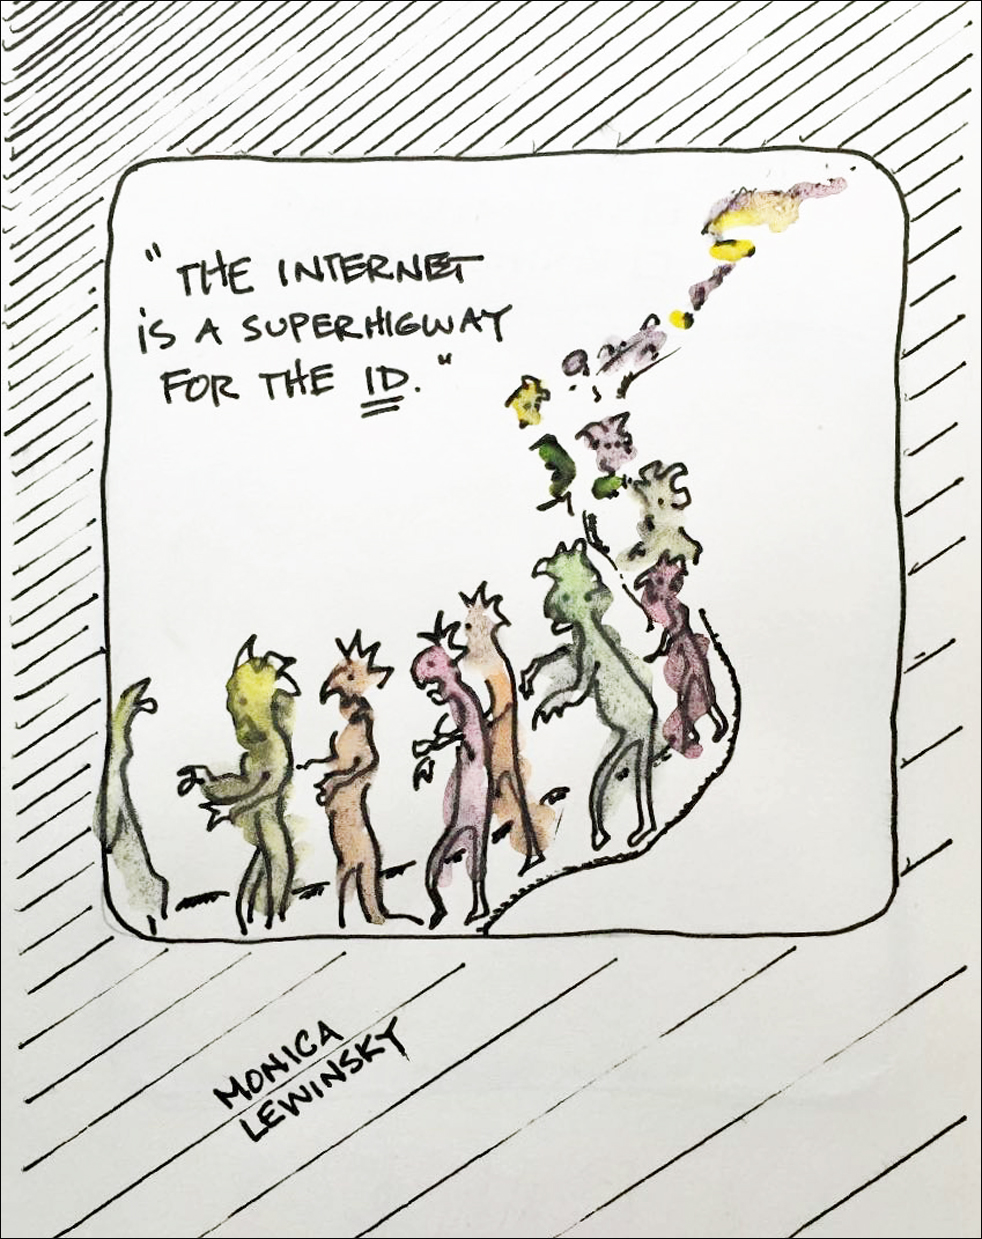 "THE INTERNET
IS A SUPERHIGWAY
FOR THE ID."
MONICA
LEWINSKY